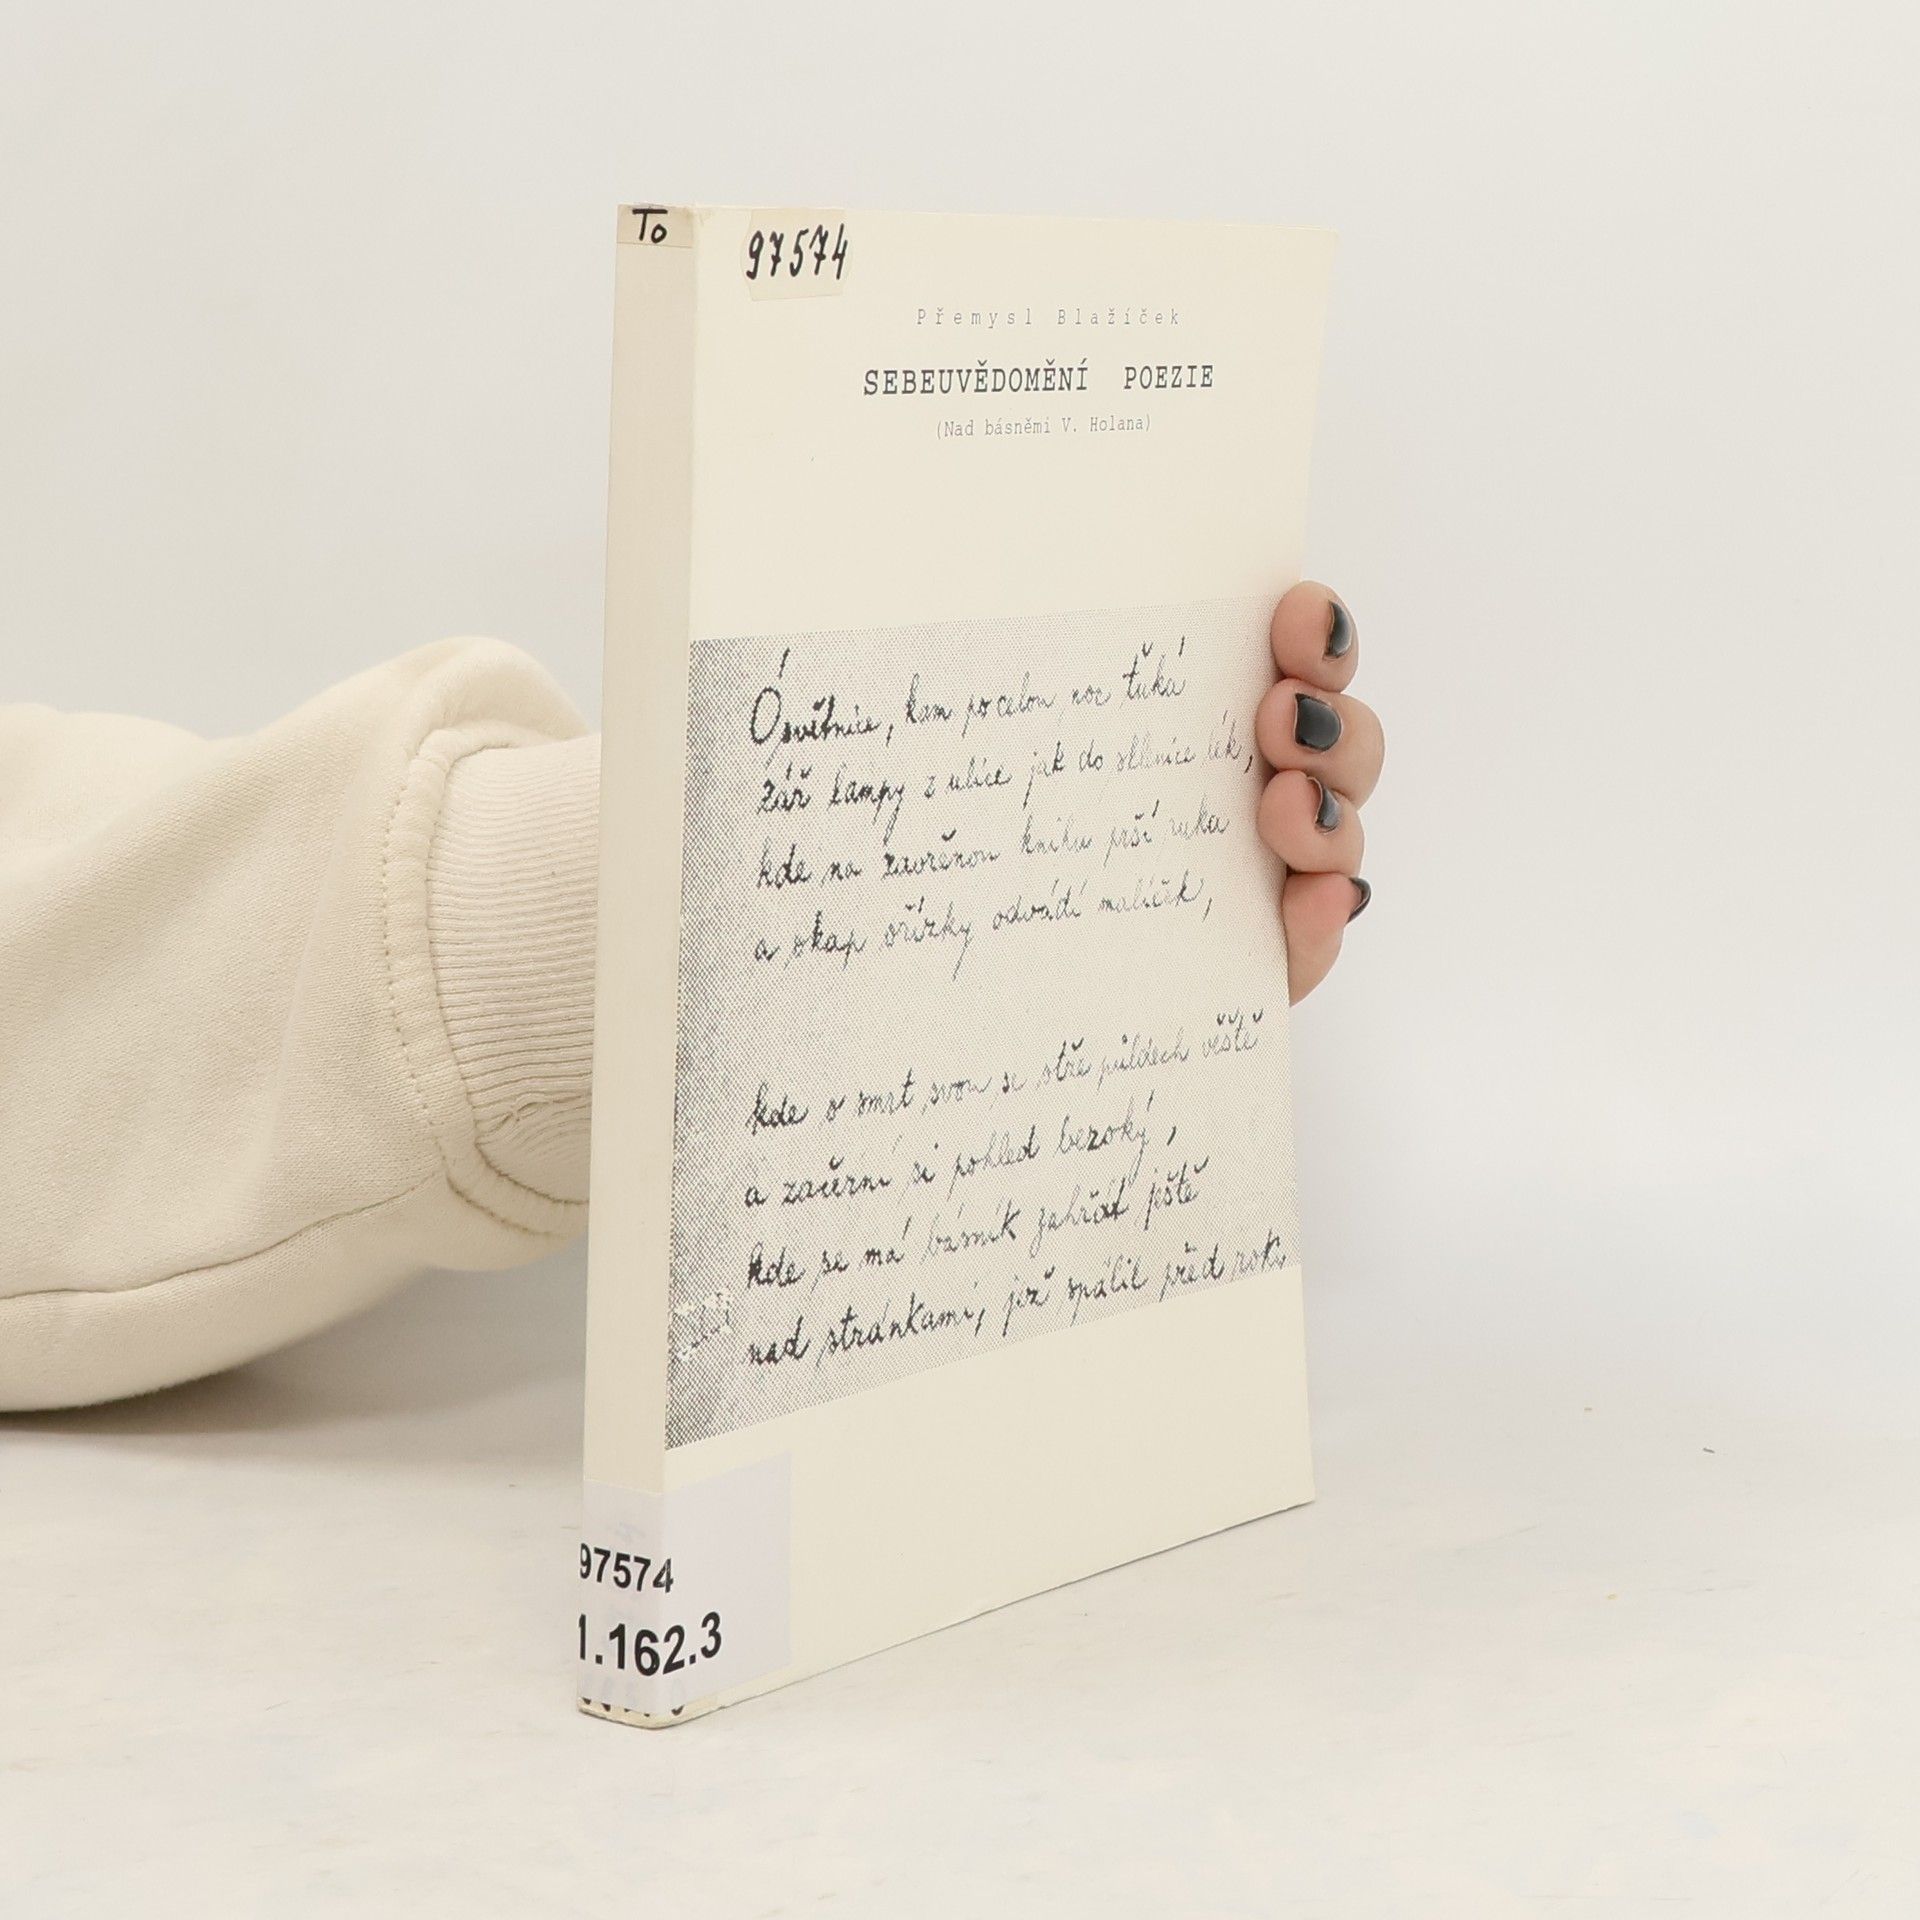 To
97574
Přemysl Blažíček
SEBEUVĚDOMĚNÍ POEZIE
(Nad básněmi V. Holana)
Ó světnice, kam po celou noc ťuká
zář lampy z ulice jak do sklenice lék,
kde na zavřenou knihu prší ruka
a okap ořízky odvádí malíček,
kde o smrt svou se otře půldech věště
a začerní si pohled bezoký,
kde se má básník zahřát ještě
nad stránkami, jež spálil před roky
97574
1.162.3